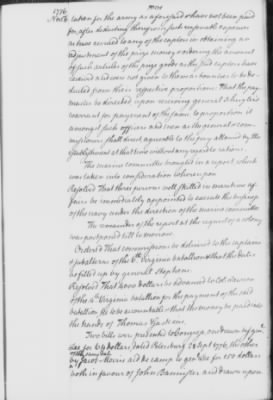 1776
Nov 6
taken for the army as aforesaid & have not been paid
for, after deducting therefrom such reasonable expences
as have accrued to any of the captors in obtaining an
adjustment of the prize money & ordering the amount
of such articles of the prize goods as the said captors have
received and were not given to them as bounties to be de
ducted from their respective proportions That the pay
master be directed upon receiving general
warrant for payment of the same to proportion it
amongst such officers and men as the general or com
missioner shall direct agreeable to the pay allowed by the
establishment at that time without any regard to rations.
The marine committee brought in a report which
was taken into consideration whereupon
Resolved That three persons well skilled in maritime af
fairs be immediately appointed to execute the business
of the navy under the direction of the marine committee
The remainder of the report as the report of a
was postponed till to morrow.
Ordered That commissions be delivered to the captains
& subalterns of the 6th Virginia battalion & that the dates
be filled up by general Stephen
Resolved That 4000 dollars be advanced to Col. Lawson
of the 4th Virginia battalion for the payment of the said
battalion he to be accountable & that the money be paid into
the hands of Thomas
Two bills were presented to Congress one drawn by
for 64 dollars dated Petersburg 28 Sept 1776, the other
of the same date
by Jacob Morris aid de camp to gen. Lee for 150 dollars
both in favour of John Bannister and drawn upon